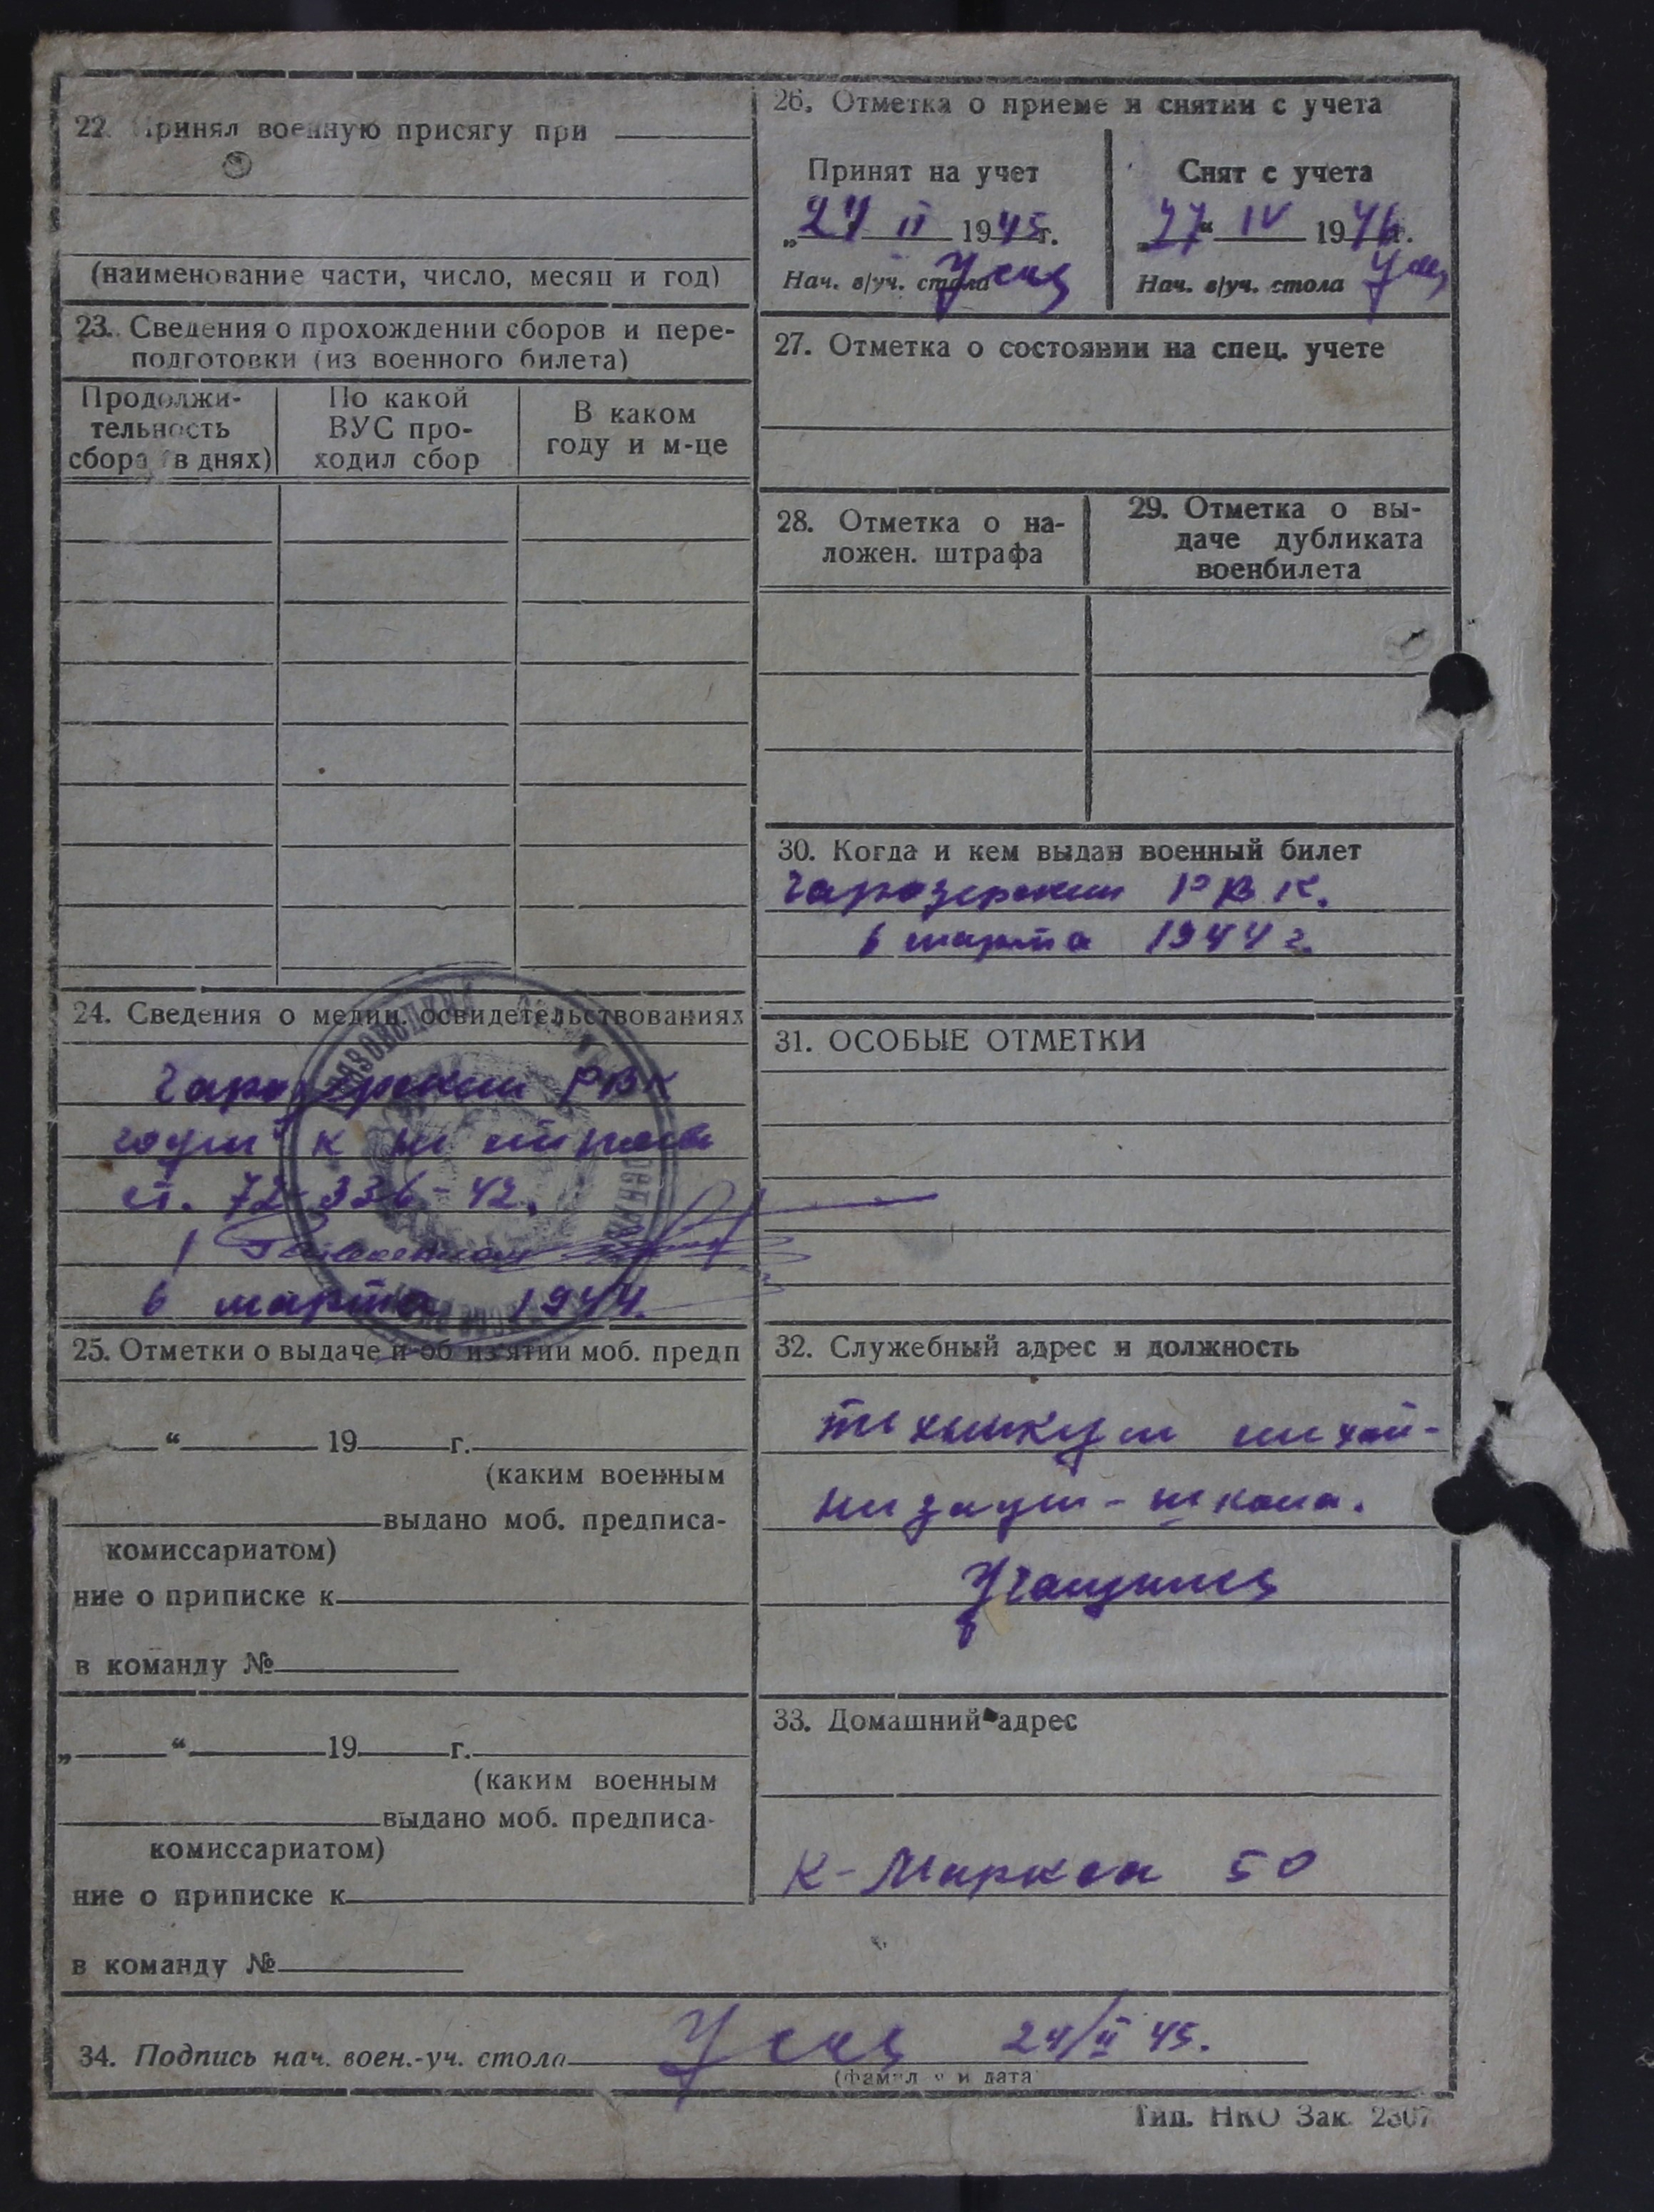 22. Принял военную присягу при
(наименование части, число, месяц и год)
23. Сведения о прохождении сборов и пере-
подготовки (из военного билета)
Продолжи-
тельность
сбора (в днях)
По какой
ВУС про-
ходил сбор
В каком
году и м-це
24. Сведения о медиц. освидетельствованиях
РВК
годен к
ст. 72 336-42.
6 марта 1944.
25. Отметки о выдаче и об из'ятии моб. предп
“ 19 г.
(каким военным
выдано моб. предписа-
комиссариатом)
ние о приписке к
в команду №
„ “ 19 г.
(каким военным
выдано моб. предписа-
комиссариатом)
ние о приписке к
в команду №
26. Отметка о приеме и снятии с учета
Принят на учет
„24 II 1945 г.
Нач. в/уч. стола
Снят с учета
„27“ IV 1946 г.
Нач. в/уч. стола
27. Отметка о состоянии на спец. учете
28. Отметка о на-
ложен. штрафа
29. Отметка о вы-
даче дубликата
военбилета
30. Когда и кем выдан военный билет
РВК.
6 марта 1944 г.
31. ОСОБЫЕ ОТМЕТКИ
32. Служебный адрес и должность
техникум механ-
низации - школа.
Учащийся
33. Домашний адрес
К-Маркса 50
34. Подпись нач. воен.-уч. стола 24/II 45.
(фамилия и дата
Тип. НКО Зак. 2307